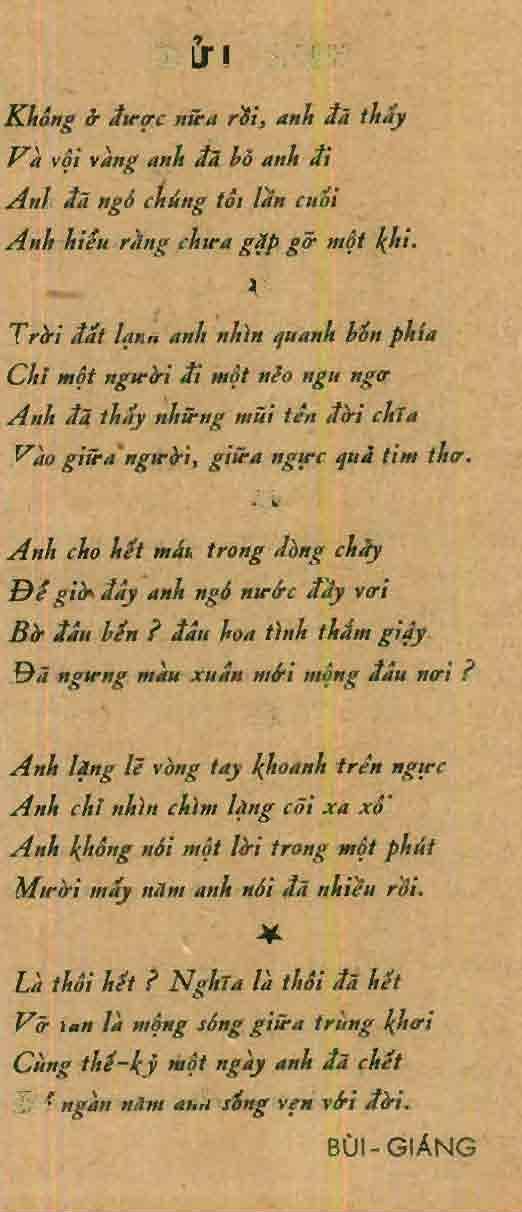 ỬI
Không ở được nữa rồi, anh đã thấy
Và vội vàng anh đã bỏ anh đi
Anh đã ngó chúng tôi lần cuối
Anh hiểu rằng chưa gặp gỡ một khi.
Trời đất lạnh anh nhìn quanh bốn phía
Chỉ một người đi một nẻo ngu ngơ
Anh đã thấy những mũi tên đời chĩa
Vào giữa người, giữa ngực quả tim thơ.
Anh cho hết máu trong dòng chảy
Để giờ đây anh ngó nước đầy vơi
Bờ đâu bến ? đâu hoa tình thắm giậy
Đã ngưng màu xuân mới mộng đâu nơi ?
Anh lặng lẽ vòng tay khoanh trên ngực
Anh chỉ nhìn chìm lặng cõi xa xô
Anh không nói một lời trong một phút
Mười mấy năm anh nói đã nhiều rồi.
Là thôi hết ? Nghĩa là thôi đã hết
Vỡ tan là mộng sóng giữa trùng khơi
Cùng thế-kỷ một ngày anh đã chết
ngàn năm anh sống vẹn với đời.
BÙI-GIÁNG